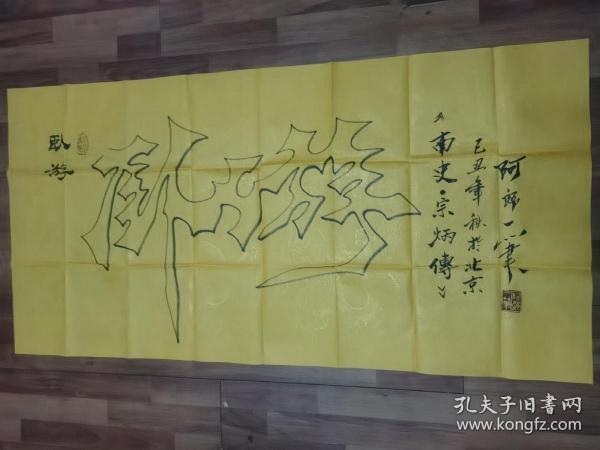 卧游
卧游
《南史·宗炳傳》
己丑年秋於北京
阿郎一笔
孔夫子旧书网
www.kongfz.com